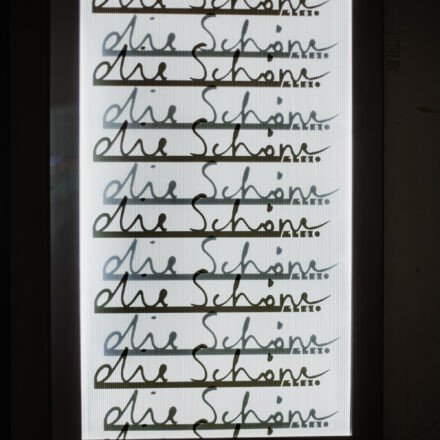 die Schöne
die Schöne
die Schöne
die Schöne
die Schöne
die Schöne
die Schöne
die Schöne
die Schöne
die Schöne
die Schöne